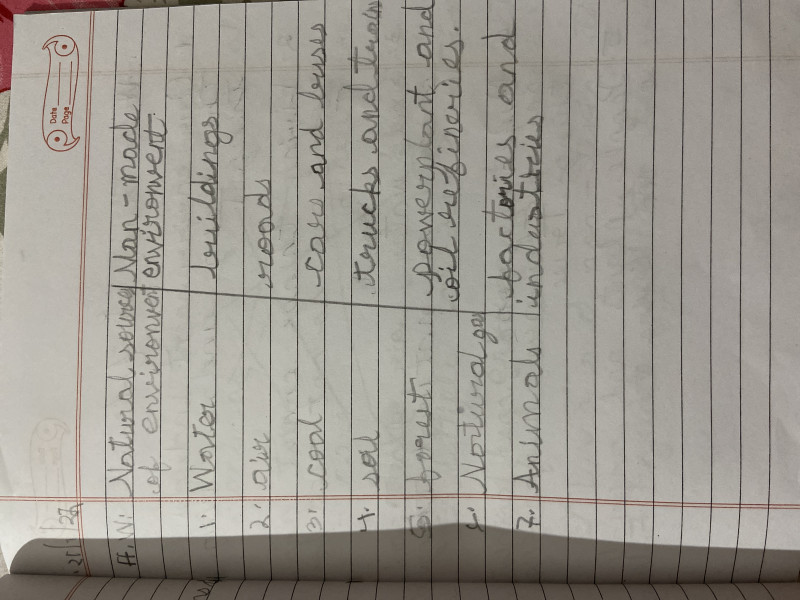 Date
Page
Natural source Man-made
of environmet environment
1. Water buildings
2. air roads
3. coal cars and buses
4. soil trucks and
5. forest powerplant and
oil refineries.
Natural
7. Animals factories and
industries